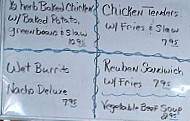 ½ herb Baked Chicken
w/ Baked Potato,
green beans & Slaw
10.95
Chicken Tenders
w/ Fries & Slaw
7.95
Wet Burrito
Nacho Deluxe
7.95
Reuben Sandwich
w/ Fries 7.95
Vegetable Beef Soup